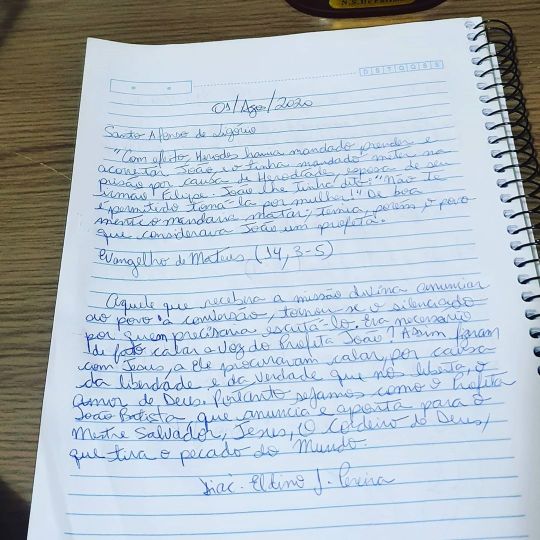 N.S. DE FÁTIMA
D S T Q Q S S
01/Ago/2020
Santo Afonso de Ligório
"Com efeito, Herodes havia mandado prender e
acorrentar João, e o tinha mandado meter na
prisão por causa de Herodíades, esposa de seu
irmão Filipe. João lhe tinha dito: "Não te
é permitido tomá-la por mulher!" De boa
mente o mandaria matar; temia, porém, o povo
que considerava João um profeta.
Evangelho de Mateus (14, 3-5)
Aquele que recebera a missão divina anunciar
ao povo a conversão, tornou-se o silenciado
por quem precisaria escutá-lo. Era necessário
de fato calar a voz do Profeta João? Assim fizeram
com Jesus, a Ele procuraram calar, por causa
da liberdade e da verdade que nos liberta, o
amor de Deus. Portanto sejamos como o Profeta
João Batista que anuncia e aponta para o
Mestre Salvador, Jesus, (O Cordeiro de Deus,
que tira o pecado do Mundo.
Diac. Eldino J. Pereira